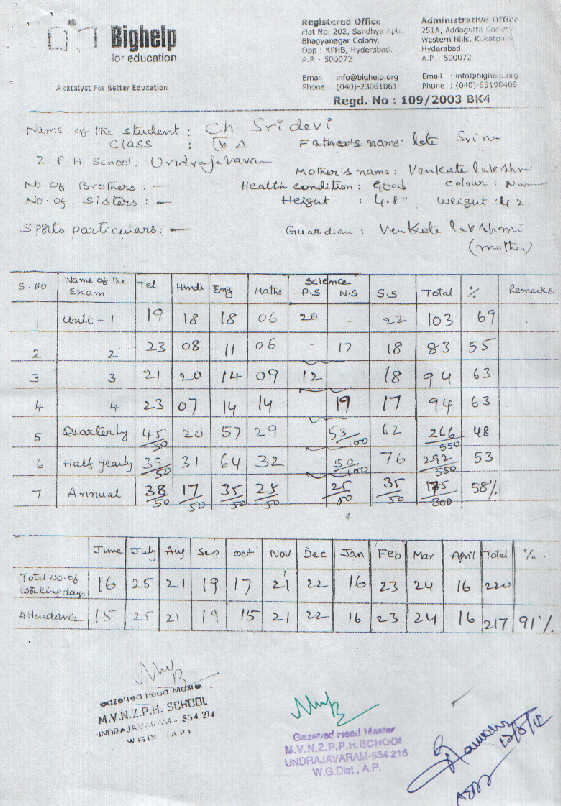 Bighelp
for education
A catalyst For Better Education
Registered Office
Plot No: 203, Sandhya Apts.
Bhagyanagar Colony,
Opp : KPHB, Hyderabad.
A.P - 500072
Email : info@bighelp.org
Phone : (040)-23061063
Administrative Office
251A, Addagutta Society
Western Hills, Kukatpally
Hyderabad
A.P - 500072
Email : info@bighelp.org
Phone : (040)-65190406
Regd. No : 109/2003 BK4
Name of the student : Ch Sridevi
Class :
Father's name: late
Z P H School, Undrajavaram
Mother's name : Venkata lakshmi
No. of Brothers : -
Health condition : good
Colour :
No. of Sisters : -
Height : 4.8"
Weight 42
Sports particulars : -
Guardian : Venkata lakshmi
(mother)
S.NO Name of the Exam Tel Hindi Eng Maths Science P.S N.S S.S Total % Remarks
1 Unit - 1 19 18 18 06 20 - 22 103 69
2 2 23 08 11 06 - 17 18 83 55
3 3 21 20 14 09 12 18 94 63
4 4 23 07 14 14 19 17 94 63
5 Quarterly 45/50 20 57 29 53/100 62 266/550 48
6 Half yearly /50 31 64 32 50/100 76 292/550 53
7 Annual 38/50 17/50 35/50 25/50 25/50 35/50 175/300 58%
June July Aug Sep Oct Nov Dec Jan Feb Mar April Total %
Total No. of working days 16 25 21 19 17 21 22 16 23 24 16 220
Attendance 15 25 21 19 15 21 22 16 23 24 16 217 91%
Gazetted Head Master
M.V.N.Z.P.H. SCHOOL
UNDRAJAVARAM - 534 216
W.G.Dt., A.P.
Gazetted Head Master
M.V.N.Z.P.P.H.SCHOOL
UNDRAJAVARAM-534 216
W.G.Dist., A.P.